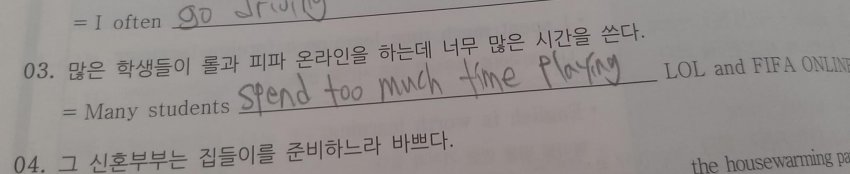 = I often go driving
03. 많은 학생들이 롤과 피파 온라인을 하는데 너무 많은 시간을 쓴다.
= Many students spend too much time playing LOL and FIFA ONLINE
04. 그 신혼부부는 집들이를 준비하느라 바쁘다.
the housewarming pa